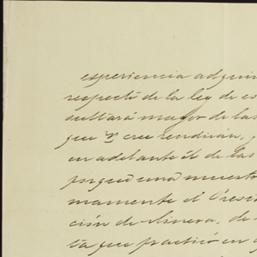 esperiencia adquiri
respectó de la ley de es
sultará mayor de las
que V. cree rendirán,
en adelante il de las
porque una muest
mamente el Presi
ción de Minera. de
ta que practicó en